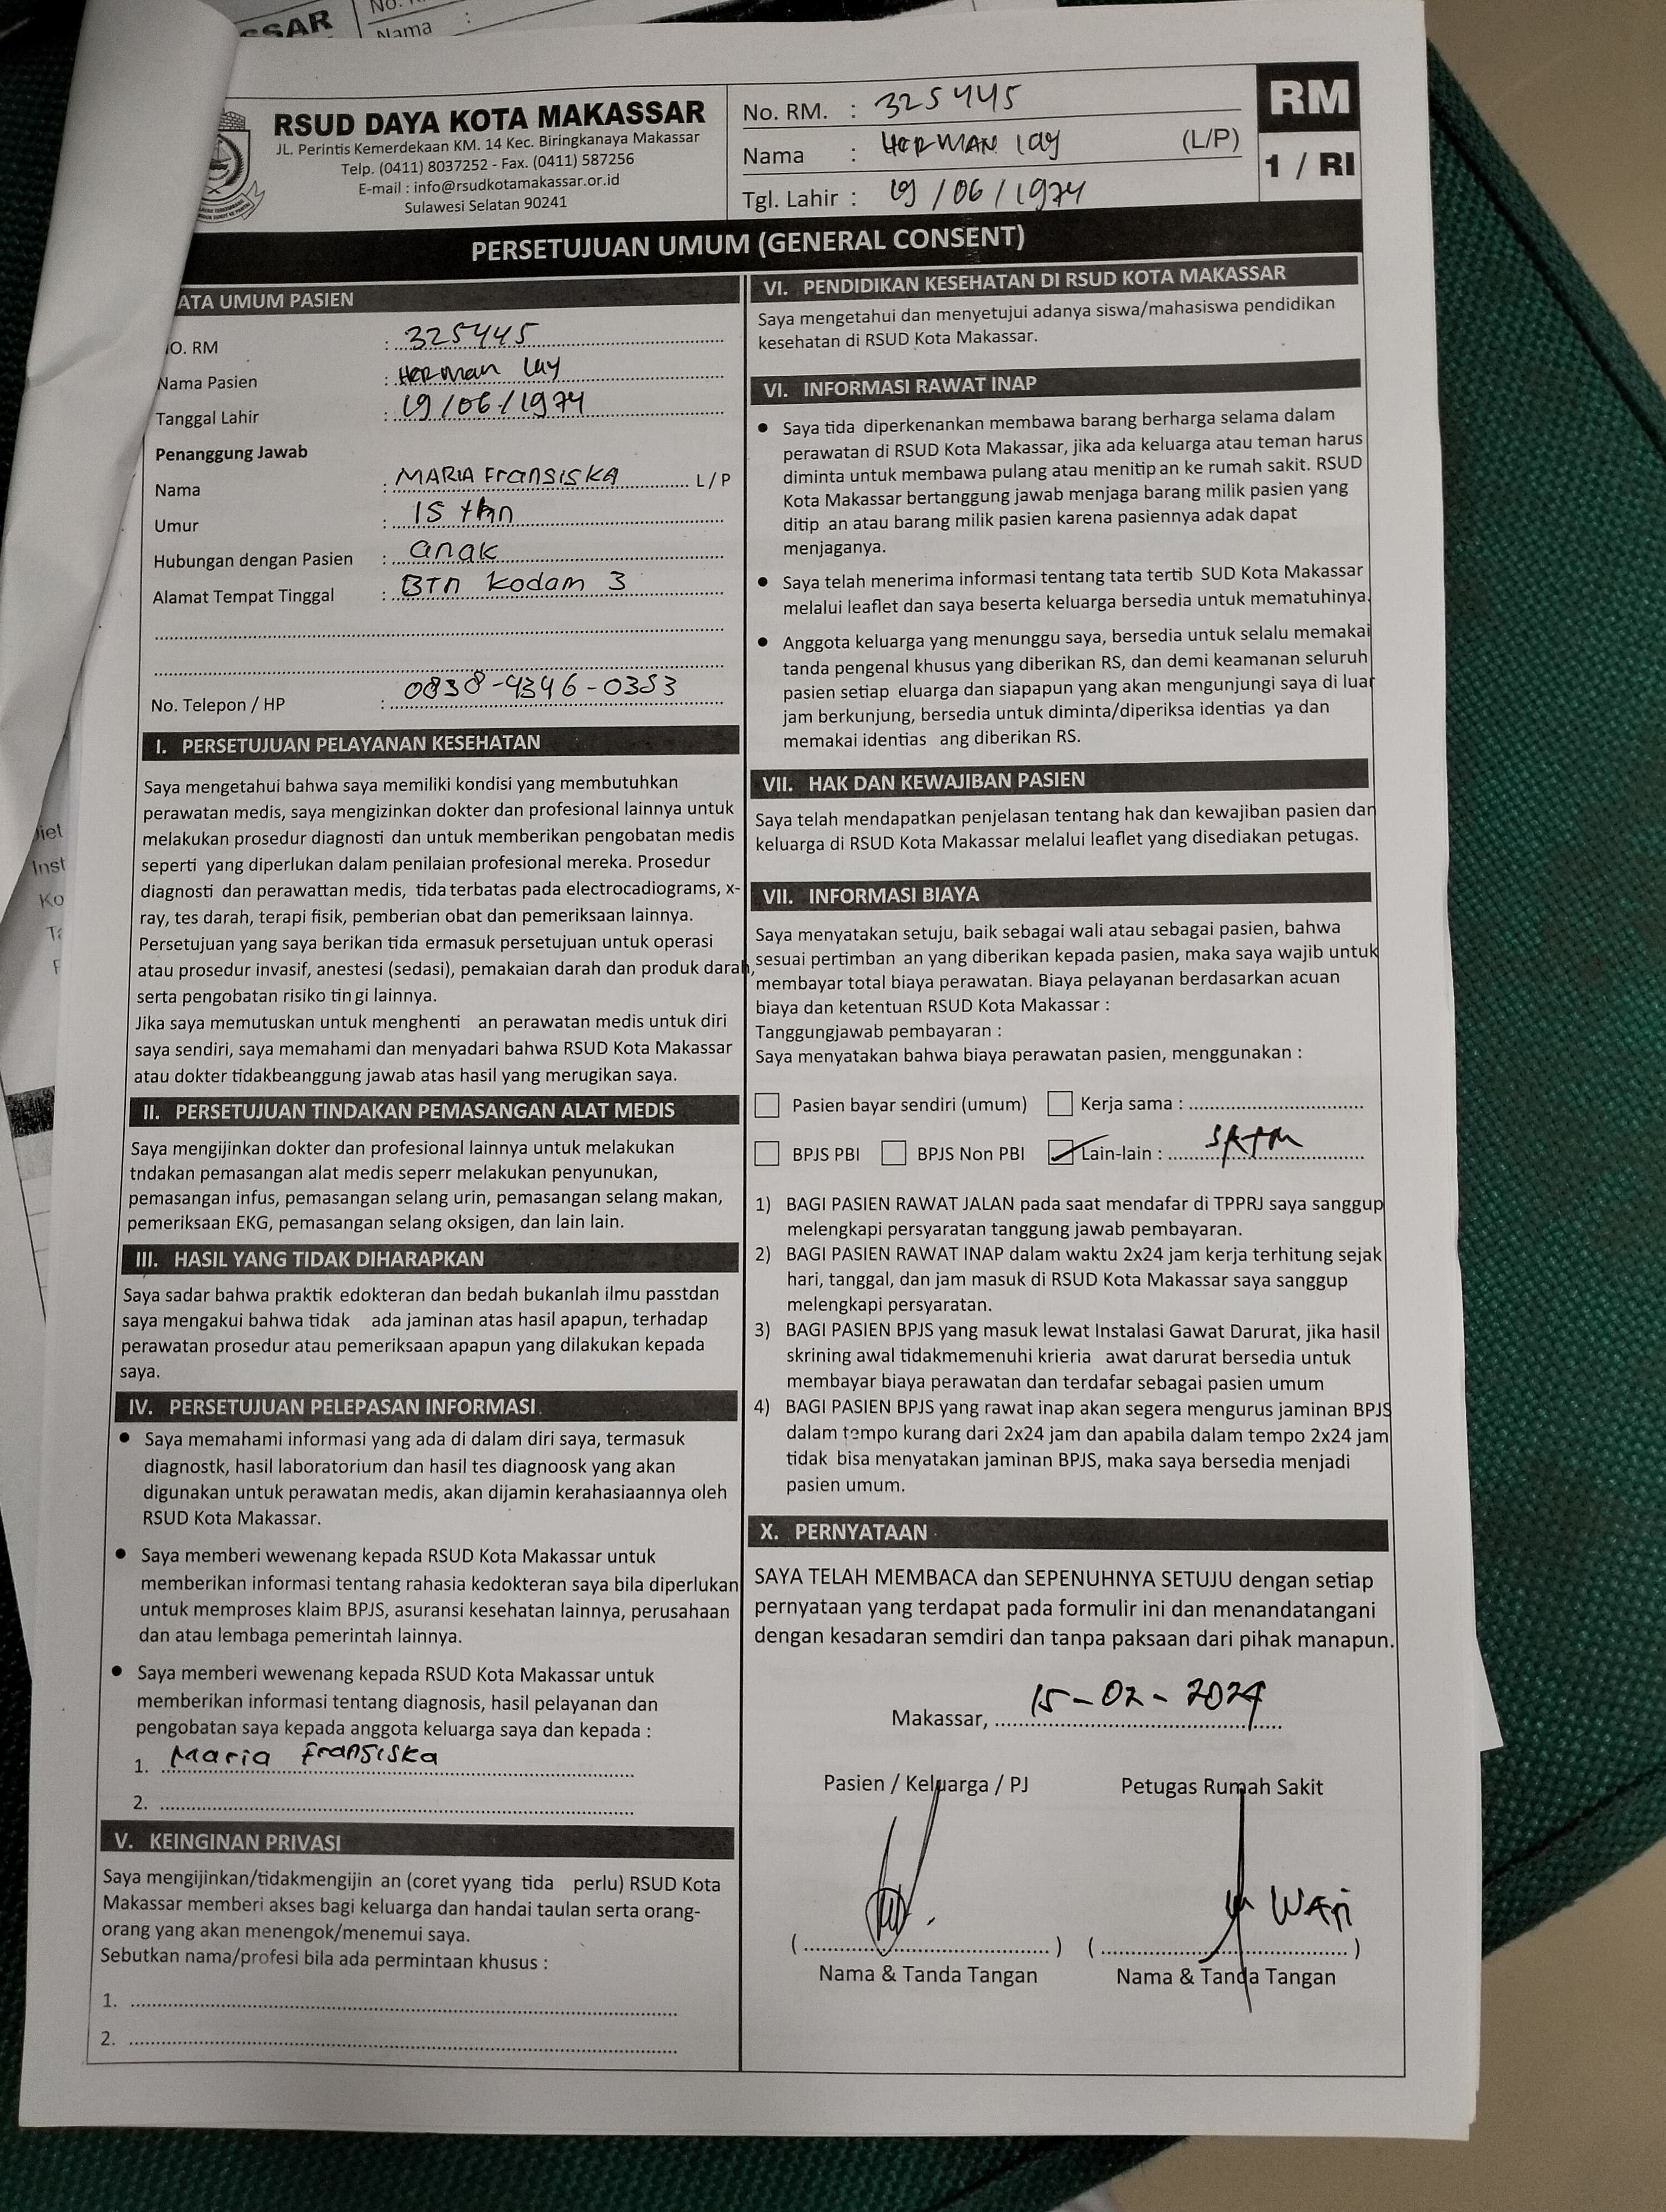 SSAR
No. R
Nama :
RSUD DAYA KOTA MAKASSAR
JL. Perintis Kemerdekaan KM. 14 Kec. Biringkanaya Makassar
Telp. (0411) 8037252 - Fax. (0411) 587256
E-mail : info@rsudkotamakassar.or.id
Sulawesi Selatan 90241
No. RM. : 325445
Nama : HERMAN lay (L/P)
Tgl. Lahir : 19/06/1974
RM
1 / RI
PERSETUJUAN UMUM (GENERAL CONSENT)
ATA UMUM PASIEN
O. RM : 325445
Nama Pasien : Herman lay
Tanggal Lahir : 19/06/1974
Penanggung Jawab
Nama : MARIA Fransiska L / P
Umur : 15 thn
Hubungan dengan Pasien : anak
Alamat Tempat Tinggal : BTn Kodam 3
No. Telepon / HP : 0838-4346-0353
I. PERSETUJUAN PELAYANAN KESEHATAN
Saya mengetahui bahwa saya memiliki kondisi yang membutuhkan
perawatan medis, saya mengizinkan dokter dan profesional lainnya untuk
melakukan prosedur diagnosti dan untuk memberikan pengobatan medis
seperti yang diperlukan dalam penilaian profesional mereka. Prosedur
diagnosti dan perawattan medis, tida terbatas pada electrocadiograms, x-
ray, tes darah, terapi fisik, pemberian obat dan pemeriksaan lainnya.
Persetujuan yang saya berikan tida ermasuk persetujuan untuk operasi
atau prosedur invasif, anestesi (sedasi), pemakaian darah dan produk darah,
serta pengobatan risiko tin gi lainnya.
Jika saya memutuskan untuk menghenti an perawatan medis untuk diri
saya sendiri, saya memahami dan menyadari bahwa RSUD Kota Makassar
atau dokter tidakbeanggung jawab atas hasil yang merugikan saya.
II. PERSETUJUAN TINDAKAN PEMASANGAN ALAT MEDIS
Saya mengijinkan dokter dan profesional lainnya untuk melakukan
tndakan pemasangan alat medis seperr melakukan penyunukan,
pemasangan infus, pemasangan selang urin, pemasangan selang makan,
pemeriksaan EKG, pemasangan selang oksigen, dan lain lain.
III. HASIL YANG TIDAK DIHARAPKAN
Saya sadar bahwa praktik edokteran dan bedah bukanlah ilmu passtdan
saya mengakui bahwa tidak ada jaminan atas hasil apapun, terhadap
perawatan prosedur atau pemeriksaan apapun yang dilakukan kepada
saya.
IV. PERSETUJUAN PELEPASAN INFORMASI
• Saya memahami informasi yang ada di dalam diri saya, termasuk
diagnostk, hasil laboratorium dan hasil tes diagnoosk yang akan
digunakan untuk perawatan medis, akan dijamin kerahasiaannya oleh
RSUD Kota Makassar.
• Saya memberi wewenang kepada RSUD Kota Makassar untuk
memberikan informasi tentang rahasia kedokteran saya bila diperlukan
untuk memproses klaim BPJS, asuransi kesehatan lainnya, perusahaan
dan atau lembaga pemerintah lainnya.
• Saya memberi wewenang kepada RSUD Kota Makassar untuk
memberikan informasi tentang diagnosis, hasil pelayanan dan
pengobatan saya kepada anggota keluarga saya dan kepada :
1. Maria Fransiska
2.
V. KEINGINAN PRIVASI
Saya mengijinkan/tidakmengijin an (coret yyang tida perlu) RSUD Kota
Makassar memberi akses bagi keluarga dan handai taulan serta orang-
orang yang akan menengok/menemui saya.
Sebutkan nama/profesi bila ada permintaan khusus :
1.
2.
VI. PENDIDIKAN KESEHATAN DI RSUD KOTA MAKASSAR
Saya mengetahui dan menyetujui adanya siswa/mahasiswa pendidikan
kesehatan di RSUD Kota Makassar.
VI. INFORMASI RAWAT INAP
• Saya tida diperkenankan membawa barang berharga selama dalam
perawatan di RSUD Kota Makassar, jika ada keluarga atau teman harus
diminta untuk membawa pulang atau menitip an ke rumah sakit. RSUD
Kota Makassar bertanggung jawab menjaga barang milik pasien yang
ditip an atau barang milik pasien karena pasiennya adak dapat
menjaganya.
• Saya telah menerima informasi tentang tata tertib SUD Kota Makassar
melalui leaflet dan saya beserta keluarga bersedia untuk mematuhinya.
• Anggota keluarga yang menunggu saya, bersedia untuk selalu memakai
tanda pengenal khusus yang diberikan RS, dan demi keamanan seluruh
pasien setiap eluarga dan siapapun yang akan mengunjungi saya di luar
jam berkunjung, bersedia untuk diminta/diperiksa identias ya dan
memakai identias ang diberikan RS.
VII. HAK DAN KEWAJIBAN PASIEN
Saya telah mendapatkan penjelasan tentang hak dan kewajiban pasien dan
keluarga di RSUD Kota Makassar melalui leaflet yang disediakan petugas.
VII. INFORMASI BIAYA
Saya menyatakan setuju, baik sebagai wali atau sebagai pasien, bahwa
sesuai pertimban an yang diberikan kepada pasien, maka saya wajib untuk
membayar total biaya perawatan. Biaya pelayanan berdasarkan acuan
biaya dan ketentuan RSUD Kota Makassar :
Tanggungjawab pembayaran :
Saya menyatakan bahwa biaya perawatan pasien, menggunakan :
Pasien bayar sendiri (umum) Kerja sama :
BPJS PBI BPJS Non PBI Lain-lain :
1) BAGI PASIEN RAWAT JALAN pada saat mendafar di TPPRJ saya sanggup
melengkapi persyaratan tanggung jawab pembayaran.
2) BAGI PASIEN RAWAT INAP dalam waktu 2x24 jam kerja terhitung sejak
hari, tanggal, dan jam masuk di RSUD Kota Makassar saya sanggup
melengkapi persyaratan.
3) BAGI PASIEN BPJS yang masuk lewat Instalasi Gawat Darurat, jika hasil
skrining awal tidakmemenuhi krieria awat darurat bersedia untuk
membayar biaya perawatan dan terdafar sebagai pasien umum
4) BAGI PASIEN BPJS yang rawat inap akan segera mengurus jaminan BPJS
dalam tempo kurang dari 2x24 jam dan apabila dalam tempo 2x24 jam
tidak bisa menyatakan jaminan BPJS, maka saya bersedia menjadi
pasien umum.
X. PERNYATAAN
SAYA TELAH MEMBACA dan SEPENUHNYA SETUJU dengan setiap
pernyataan yang terdapat pada formulir ini dan menandatangani
dengan kesadaran semdiri dan tanpa paksaan dari pihak manapun.
Makassar, 15-02-2024
Pasien / Keluarga / PJ Petugas Rumah Sakit
( ) ( )
Nama & Tanda Tangan Nama & Tanda Tangan